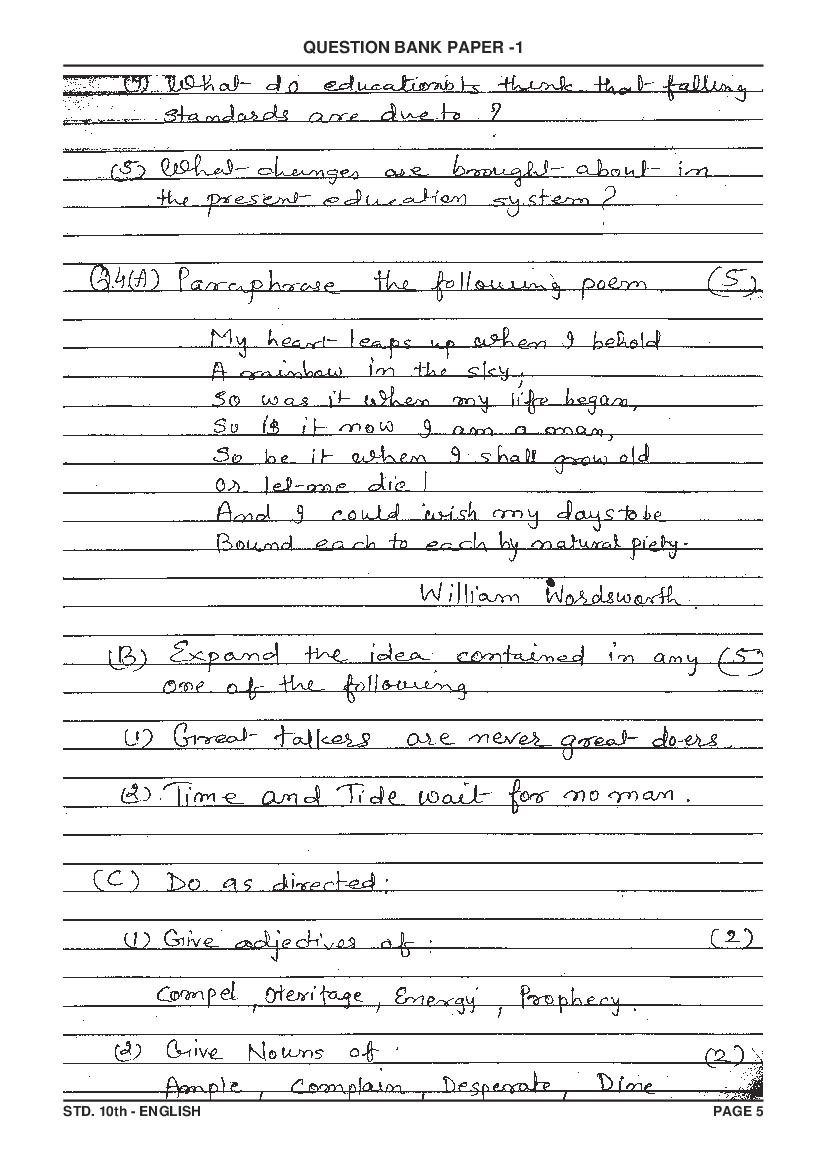 QUESTION BANK PAPER -1
(4) What do educationists think that falling
standards are due to ?
(5) What changes are brought about in
the present education system?
Q.4(A) Paraphrase the following poem. (5)
My heart leaps up when I behold
A rainbow in the sky,
So was it when my life began,
So is it now I am a man,
So be it when I shall grow old
Or let me die!
And I could wish my days to be
Bound each to each by natural piety.
William Wordsworth.
(B) Expand the idea contained in any (5)
one of the following
(1) Great talkers are never great doers
(2). Time and Tide wait for no man.
(C) Do as directed:
(1) Give adjectives of : (2)
Compel, Heritage, Energy, Prophecy.
(2) Give Nouns of : (2)
Ample, Complain, Desperate, Dine
STD. 10th - ENGLISH PAGE 5